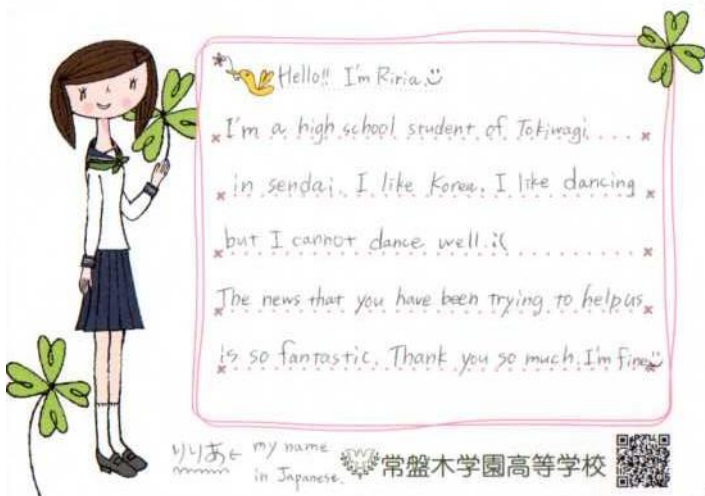 Hello!! I'm Riria.
I'm a high school student of Tokiwagi
in sendai. I like Korea. I like dancing
but I cannot dance well. :(
The news that you have been trying to help us
is so fantastic. Thank you so much. I'm fine
りりあ← my name
in Japanese.
常盤木学園高等学校